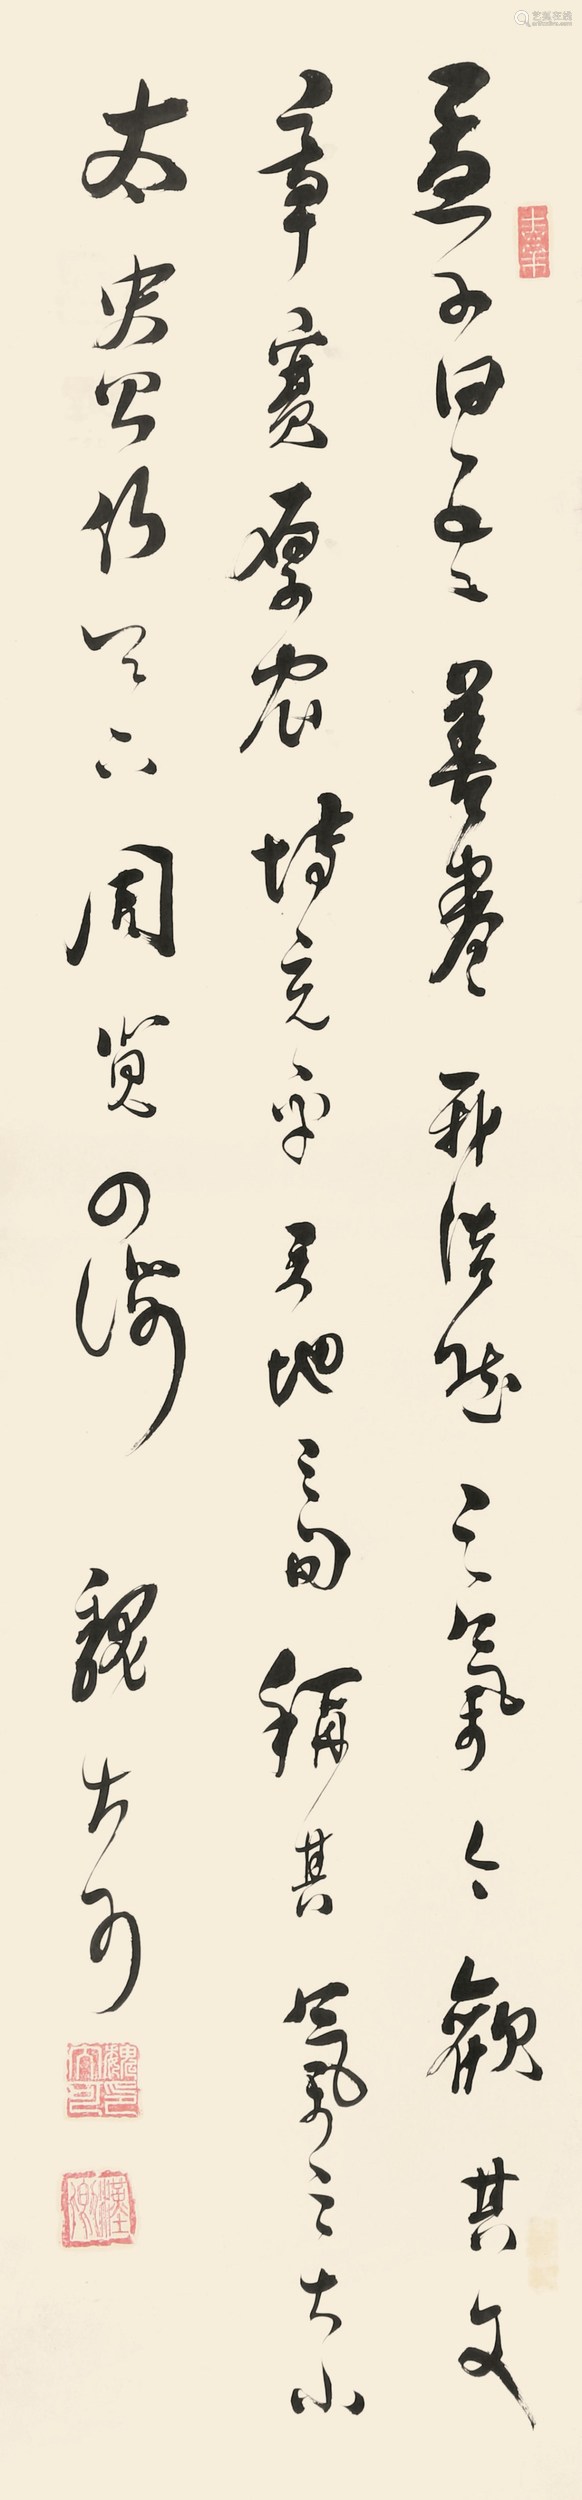 孟子曰吾善養我浩然之氣今觀其文
章寬厚宏博充乎天地之間稱其氣之大小
太史公行天下周覽四海 魏
艺狐在线